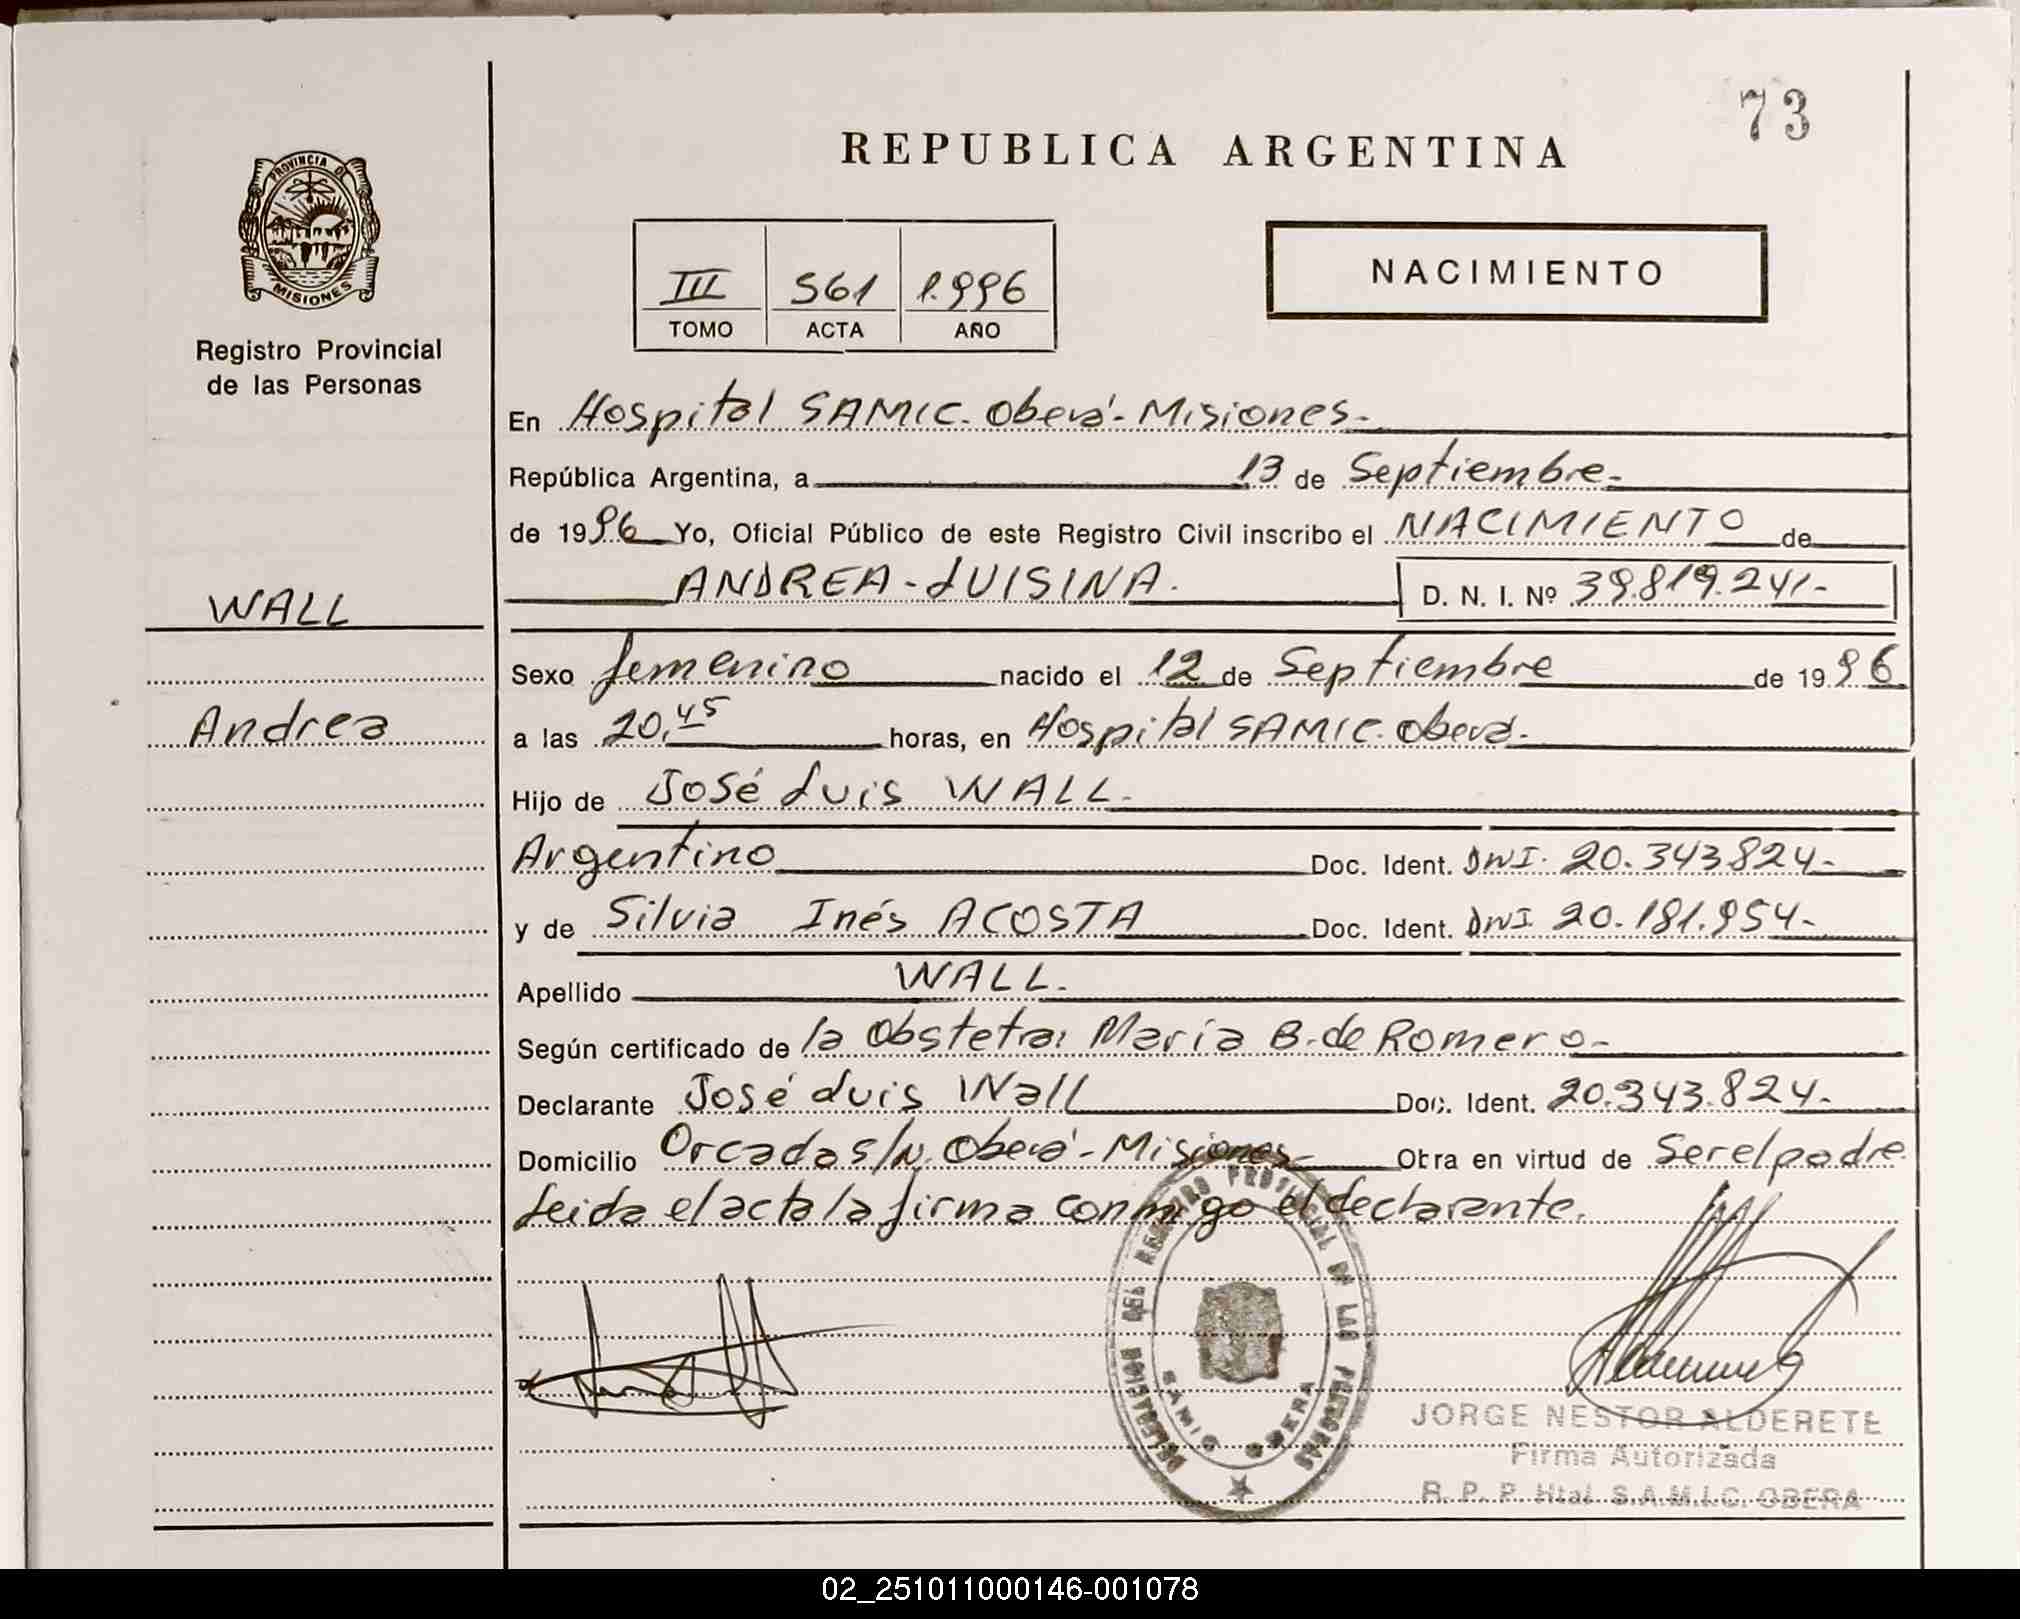 73
REPUBLICA ARGENTINA
PROVINCIA DE
MISIONES
Registro Provincial
de las Personas
III 561 1.996
TOMO ACTA AÑO
NACIMIENTO
En Hospital SAMIC. Oberá - Misiones.
República Argentina, a 13 de Septiembre.
de 1996 Yo, Oficial Público de este Registro Civil inscribo el NACIMIENTO de
ANDREA - LUISINA. D. N. I. Nº 39.819.241.-
WALL
Andrea
Sexo femenino nacido el 12 de Septiembre de 1996
a las 20,45 horas, en Hospital SAMIC. Oberá.
Hijo de José Luis WALL.
Argentino Doc. Ident. DNI. 20.343.824-
y de Silvia Inés ACOSTA Doc. Ident. DNI 20.181.954-
Apellido WALL.
Según certificado de la Obstetra: María B. de Romero-
Declarante José Luis Wall Doc. Ident. 20.343.824.
Domicilio Orcadas S/N. Oberá - Misiones Obra en virtud de Ser el padre
Leida el acta la firma conmigo el declarante.
DELEGACION DEL REGISTRO PROVINCIAL DE LAS PERSONAS
SAMIC OBERA
JORGE NESTOR ALDERETE
Firma Autorizada
R. P. P. Htal S.A.M.I.C. OBERA
02_251011000146-001078